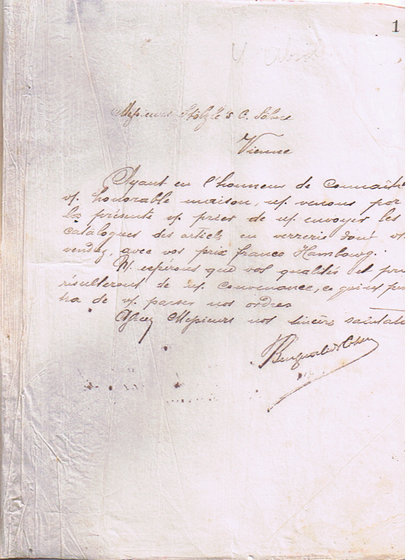 1
Messieurs Stölzle & C. Söhne
Vienne
Ayant eu l'honneur de Connaître
vs. honorable maison, ns. venons par
la présente vs. prier de ns. envoyer les
catalogues des articles en verrerie dont vs.
vendez, avec vos prix franco Hambourg.
Ns. espérons que vos qualités et prix
résulteront de ns. convenance, ce qui ns. per
tra de vs. passer nos ordres
Agréez Messieurs nos sincères salutatio